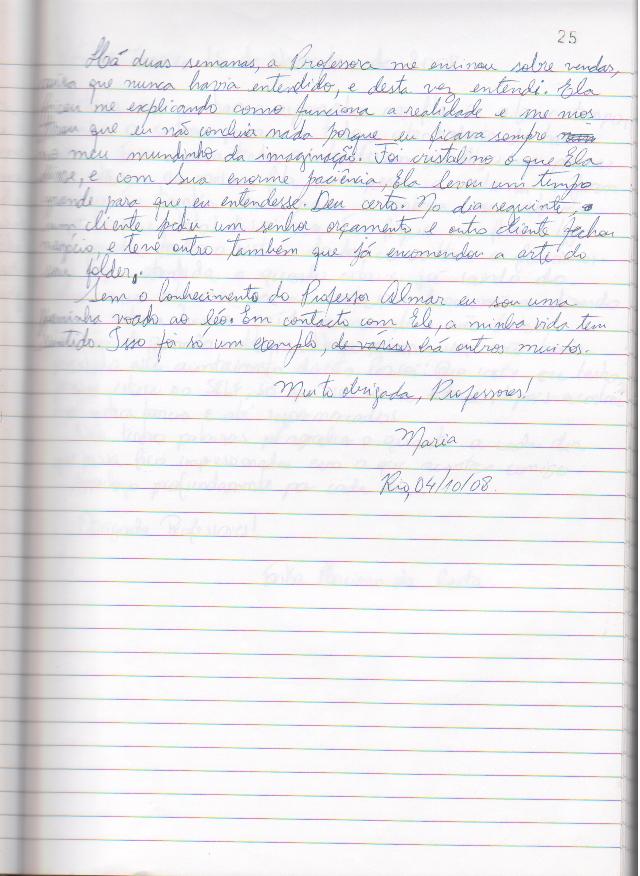 25
Há duas semanas, a Professora me ensinou sobre vendas,
que nunca havia entendido, e desta vez entendi. Ela
me explicando como funciona a realidade e me mos
que eu não concluia nada porque eu ficava sempre
meu mundinho da imaginação. Foi cristalino o que Ela
e com sua enorme paciência, Ela levou um tempo
para que eu entendesse. Deu certo. No dia seguinte
cliente pediu um senhor orçamento e outro cliente fechou
negócio, e teve outro também que já encomendou a arte do
folder.
Sem o Conhecimento do Professor Almar eu sou uma
voado ao léo. Em contacto com Ele, a minha vida tem
sentido. Isso foi só um exemplo, de vários há outros muitos.
Muito obrigada, Professores!
Maria
Rio, 04/10/08.